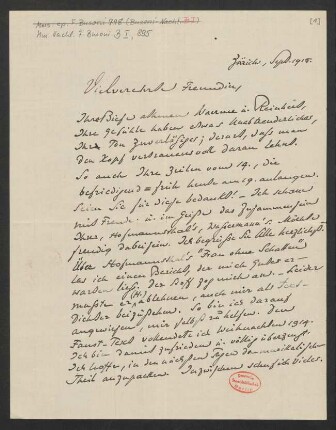 Mus. ep. F. Busoni 798 (Busoni-Nachl. B I)
Mus. Nachl. F. Busoni B I, 895
[1]
Zürich, Sept. 1918.
Vielverehrte Freundin,
Ihre Briefe athmen Wärme u. Reinheit,
Ihre Gefühle haben etwas
Ihr Ton Zuverlässiges; derart, daß man
den Kopf vertrauensvoll daran lehnt.
So auch Ihre Zeilen vom 14., die
befriedigend = früh heute am 19. anlangen.
Seien Sie für diese bedankt! – Ich schaue
mit Freude u. im Geiste das Zusammensein
Ihrer, Hofmannsthal's, Wassermann's. Möchte
freudig dabeisein. Ich begrüße Sie Alle herzlichst.
Über Hofmannsthals "Frau ohne Schatten"
las ich einen Bericht, der mich
ließ. Der Stoff zog mich an. – Leider
mußte H. ablehnen, auch mir als
Dichter beizustehen. So bin ich darauf
angewiesen, mir selbst zu helfen. Den
Faust-Text vollendete ich Weihnachten 1914.
Ich bin damit zufrieden u. völlig überzeugt.
Ich hoffe, in den nächsten Tagen den musikalischen
Theil anzupacken. Inzwischen schuf ich Vieles.